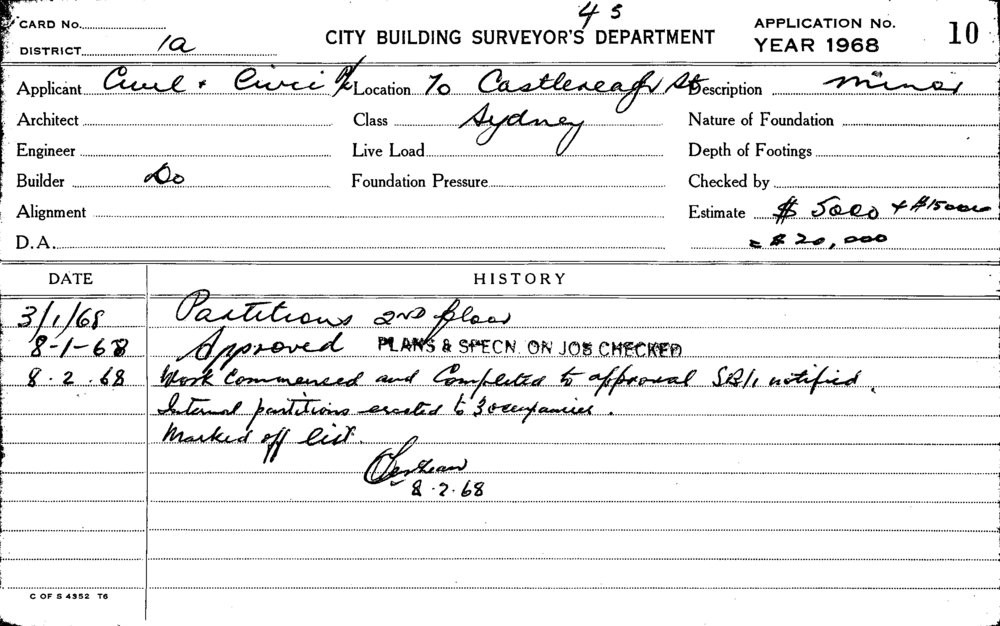 4 S
CARD No.
DISTRICT 1a
CITY BUILDING SURVEYOR'S DEPARTMENT
APPLICATION No.
YEAR 1968
10
Applicant Civil & Civic P/L
Location 70 Castlereagh St
Description Minor
Architect
Class Sydney
Nature of Foundation
Engineer
Live Load
Depth of Footings
Builder Do
Foundation Pressure
Checked by
Alignment
Estimate $ 5000 + $15000
D.A.
= $ 20,000
DATE HISTORY
3/1/68 Partitions 2ND floor
8-1-68 Approved PLANS & SPECN. ON JOB CHECKED
8.2.68 Work commensed and Completed to approval notified.
Internal partitions erected to 3 occupancies.
Marked off list.
8.2.68
C OF S 4352 T6